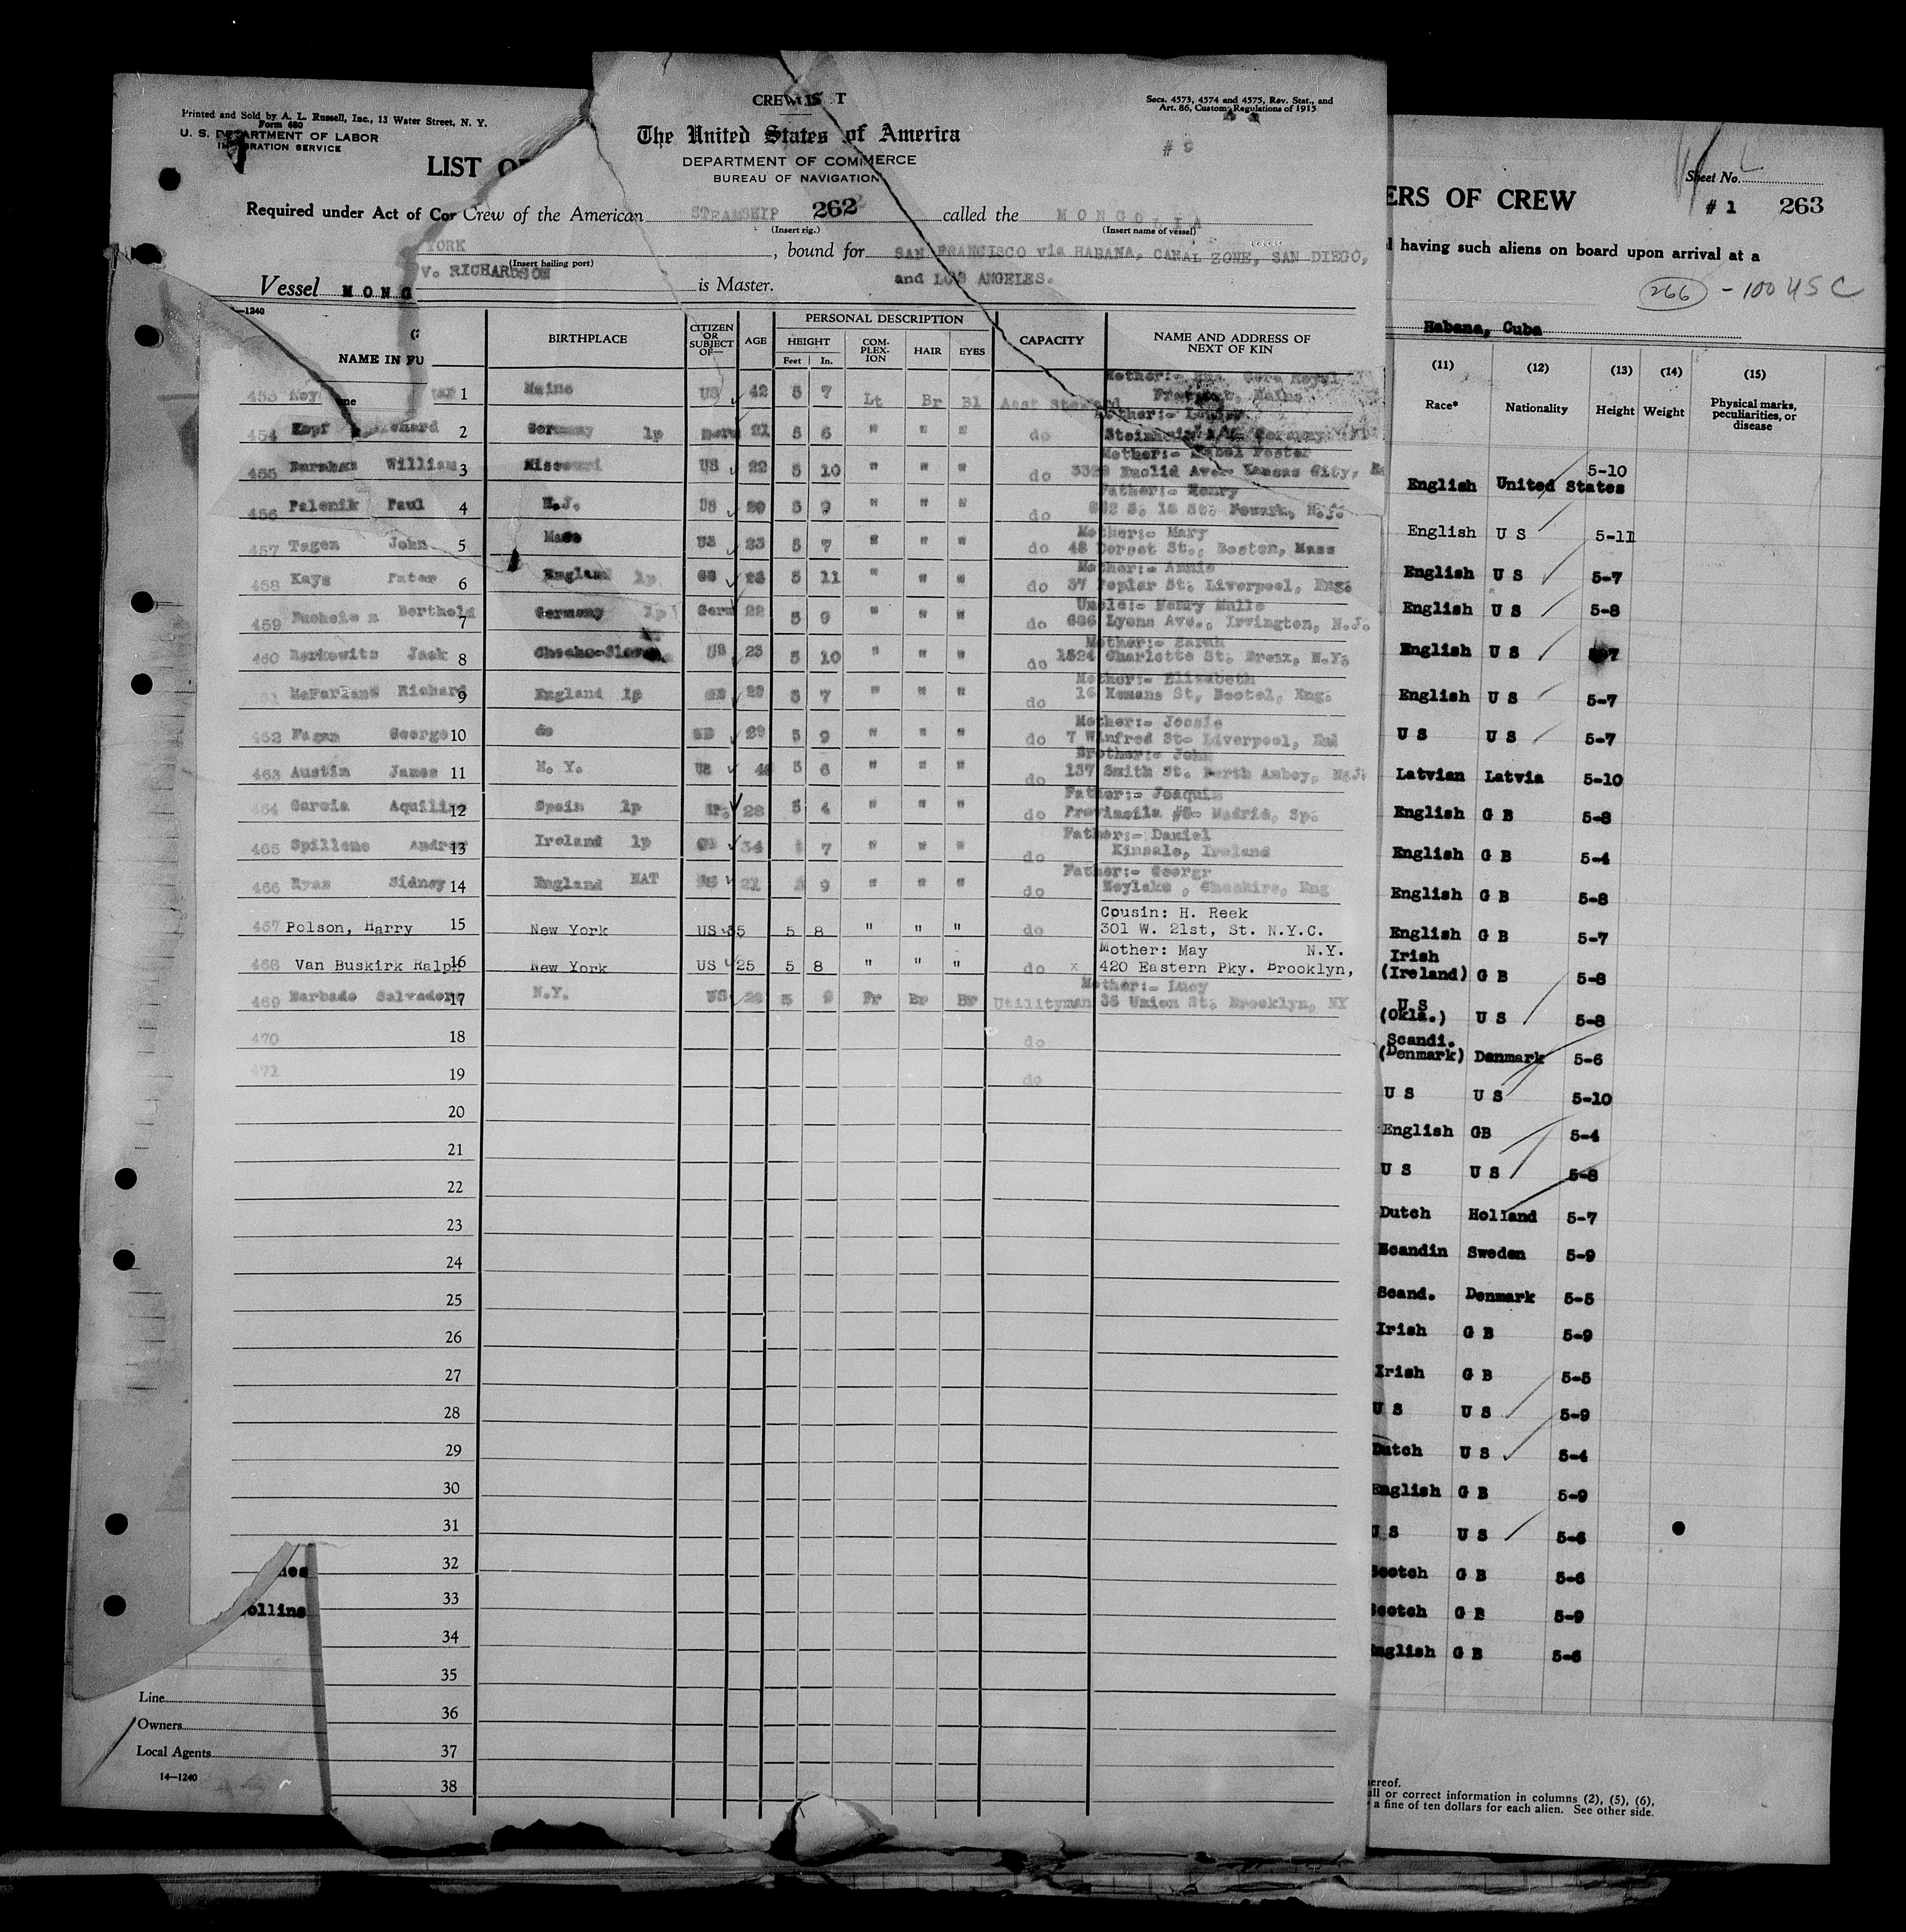 CREW LIST
Secs. 4573, 4574 and 4575, Rev. Stat., and
Art. 86, Customs Regulations of 1915
Printed and Sold by A. L. Russell, Inc., 13 Water Street, N. Y.
Form 680
U. S. DEPARTMENT OF LABOR
IMMIGRATION SERVICE
LIST OF
The United States of America
DEPARTMENT OF COMMERCE
BUREAU OF NAVIGATION
# 9
Required under Act of Con
Crew of the American STEAMSHIP 262 called the MONGOLIA
(Insert rig.) (Insert name of vessel)
YORK, bound for SAN FRANCISCO via HABANA, CANAL ZONE, SAN DIEGO,
(Insert hailing port)
V. RICHARDSON is Master. and LOS ANGELES.
Vessel MONG
—1240
NAME IN FU BIRTHPLACE CITIZEN OR SUBJECT OF— AGE PERSONAL DESCRIPTION HEIGHT Feet In. COMPLEXION HAIR EYES CAPACITY NAME AND ADDRESS OF NEXT OF KIN
453 1 Maine US 42 5 7 Lt Br Bl Asst Steward Mother:-
Maine
454 Kopf Richard 2 Germany lp Germ 21 5 6 " " " do
Germany
455 William 3 Missouri US 22 5 10 " " " do Mother:- Mabel Foster
Euclid Ave- Kansas City,
456 Palenik Paul 4 N.J. US 20 5 9 " " " do Father:- Henry
S. 18 St. Newark, N.J.
457 Tagen John 5 Mass US 23 5 7 " " " do Mother:- Mary
48 Dorset St., Boston, Mass
458 Kays Peter 6 England lp GB 5 11 " " " do Mother:- Annie
37 Poplar St. Liverpool, Eng.
459 Berthold 7 Germany lp Germ 22 5 9 " " " do Uncle:- Henry
686 Lyons Ave., Irvington, N.J.
460 Berkowitz Jack 8 US 23 5 10 " " " do Mother:- Sarah
1524 Charlotte St. Bronx, N.Y.
McFarlane Richard 9 England lp GB 5 7 " " " do Mother:- Elizabeth
16 St, Bootel, Eng.
462 Fagan George 10 do GB 29 5 9 " " " do Mother:- Jessie
7 Winfred St- Liverpool, Eng
463 Austin James 11 N. Y. US 5 6 " " " do Brother:- John
137 Smith St. Perth Amboy, N.J.
464 Garcia Aquilino 12 Spain lp Sp. 28 5 4 " " " do Father:- Joaquin
Madrid, Sp.
465 Spillene Andrew 13 Ireland lp GB 34 7 " " " do Father:- Daniel
Kinsale, Ireland
466 Ryan Sidney 14 England NAT US 21 9 " " " do Father:- Georgr
Hoylake, Cheshire, Eng
467 Polson, Harry 15 New York US 35 5 8 " " " do Cousin: H. Reek
301 W. 21st, St. N.Y.C.
468 Van Buskirk Ralph 16 New York US 25 5 8 " " " do x Mother: May N.Y.
420 Eastern Pky. Brooklyn,
469 Barbado Salvadore 17 N.Y. US 5 9 Fr Br Br Utilityman Mother:- Lucy
36 Union St. Brooklyn, NY
470 18 do
471 19 do
20
21
22
23
24
25
26
27
28
29
30
31
32
33
34
35
36
37
38
ollins
Line
Owners
Local Agents
14—1240
Sheet No.
ERS OF CREW
# 1 263
having such aliens on board upon arrival at a
266 - 100 USC
Habana, Cuba
(11) (12) (13) (14) (15)
Race* Nationality Height Weight Physical marks, peculiarities, or disease
English United States 5-10
English U S 5-11
English U S 5-7
English U S 5-8
English U S 7
English U S 5-7
U S U S 5-7
Latvian Latvia 5-10
English G B 5-8
English G B 5-4
English G B 5-8
English G B 5-7
Irish
(Ireland) G B 5-8
U S
(Okla.) U S 5-8
Scandi.
(Denmark) Denmark 5-6
U S U S 5-10
English GB 5-4
U S U S 5-8
Dutch Holland 5-7
Scandin Sweden 5-9
Scand. Denmark 5-5
Irish G B 5-9
Irish G B 5-5
U S U S 5-9
Dutch U S 5-4
English G B 5-9
U S U S 5-6
Scotch G B 5-6
Scotch G B 5-9
English G B 5-6
ereof.
all or correct information in columns (2), (5), (6),
a fine of ten dollars for each alien. See other side.